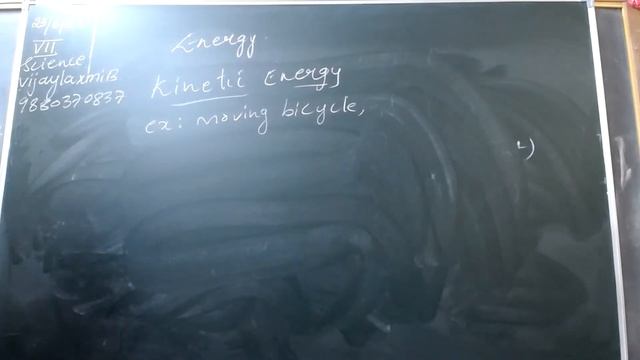 VII
Science
Vijaylaxmi B
9880370837
Energy.
Kinetic Energy
ex: moving bicycle,